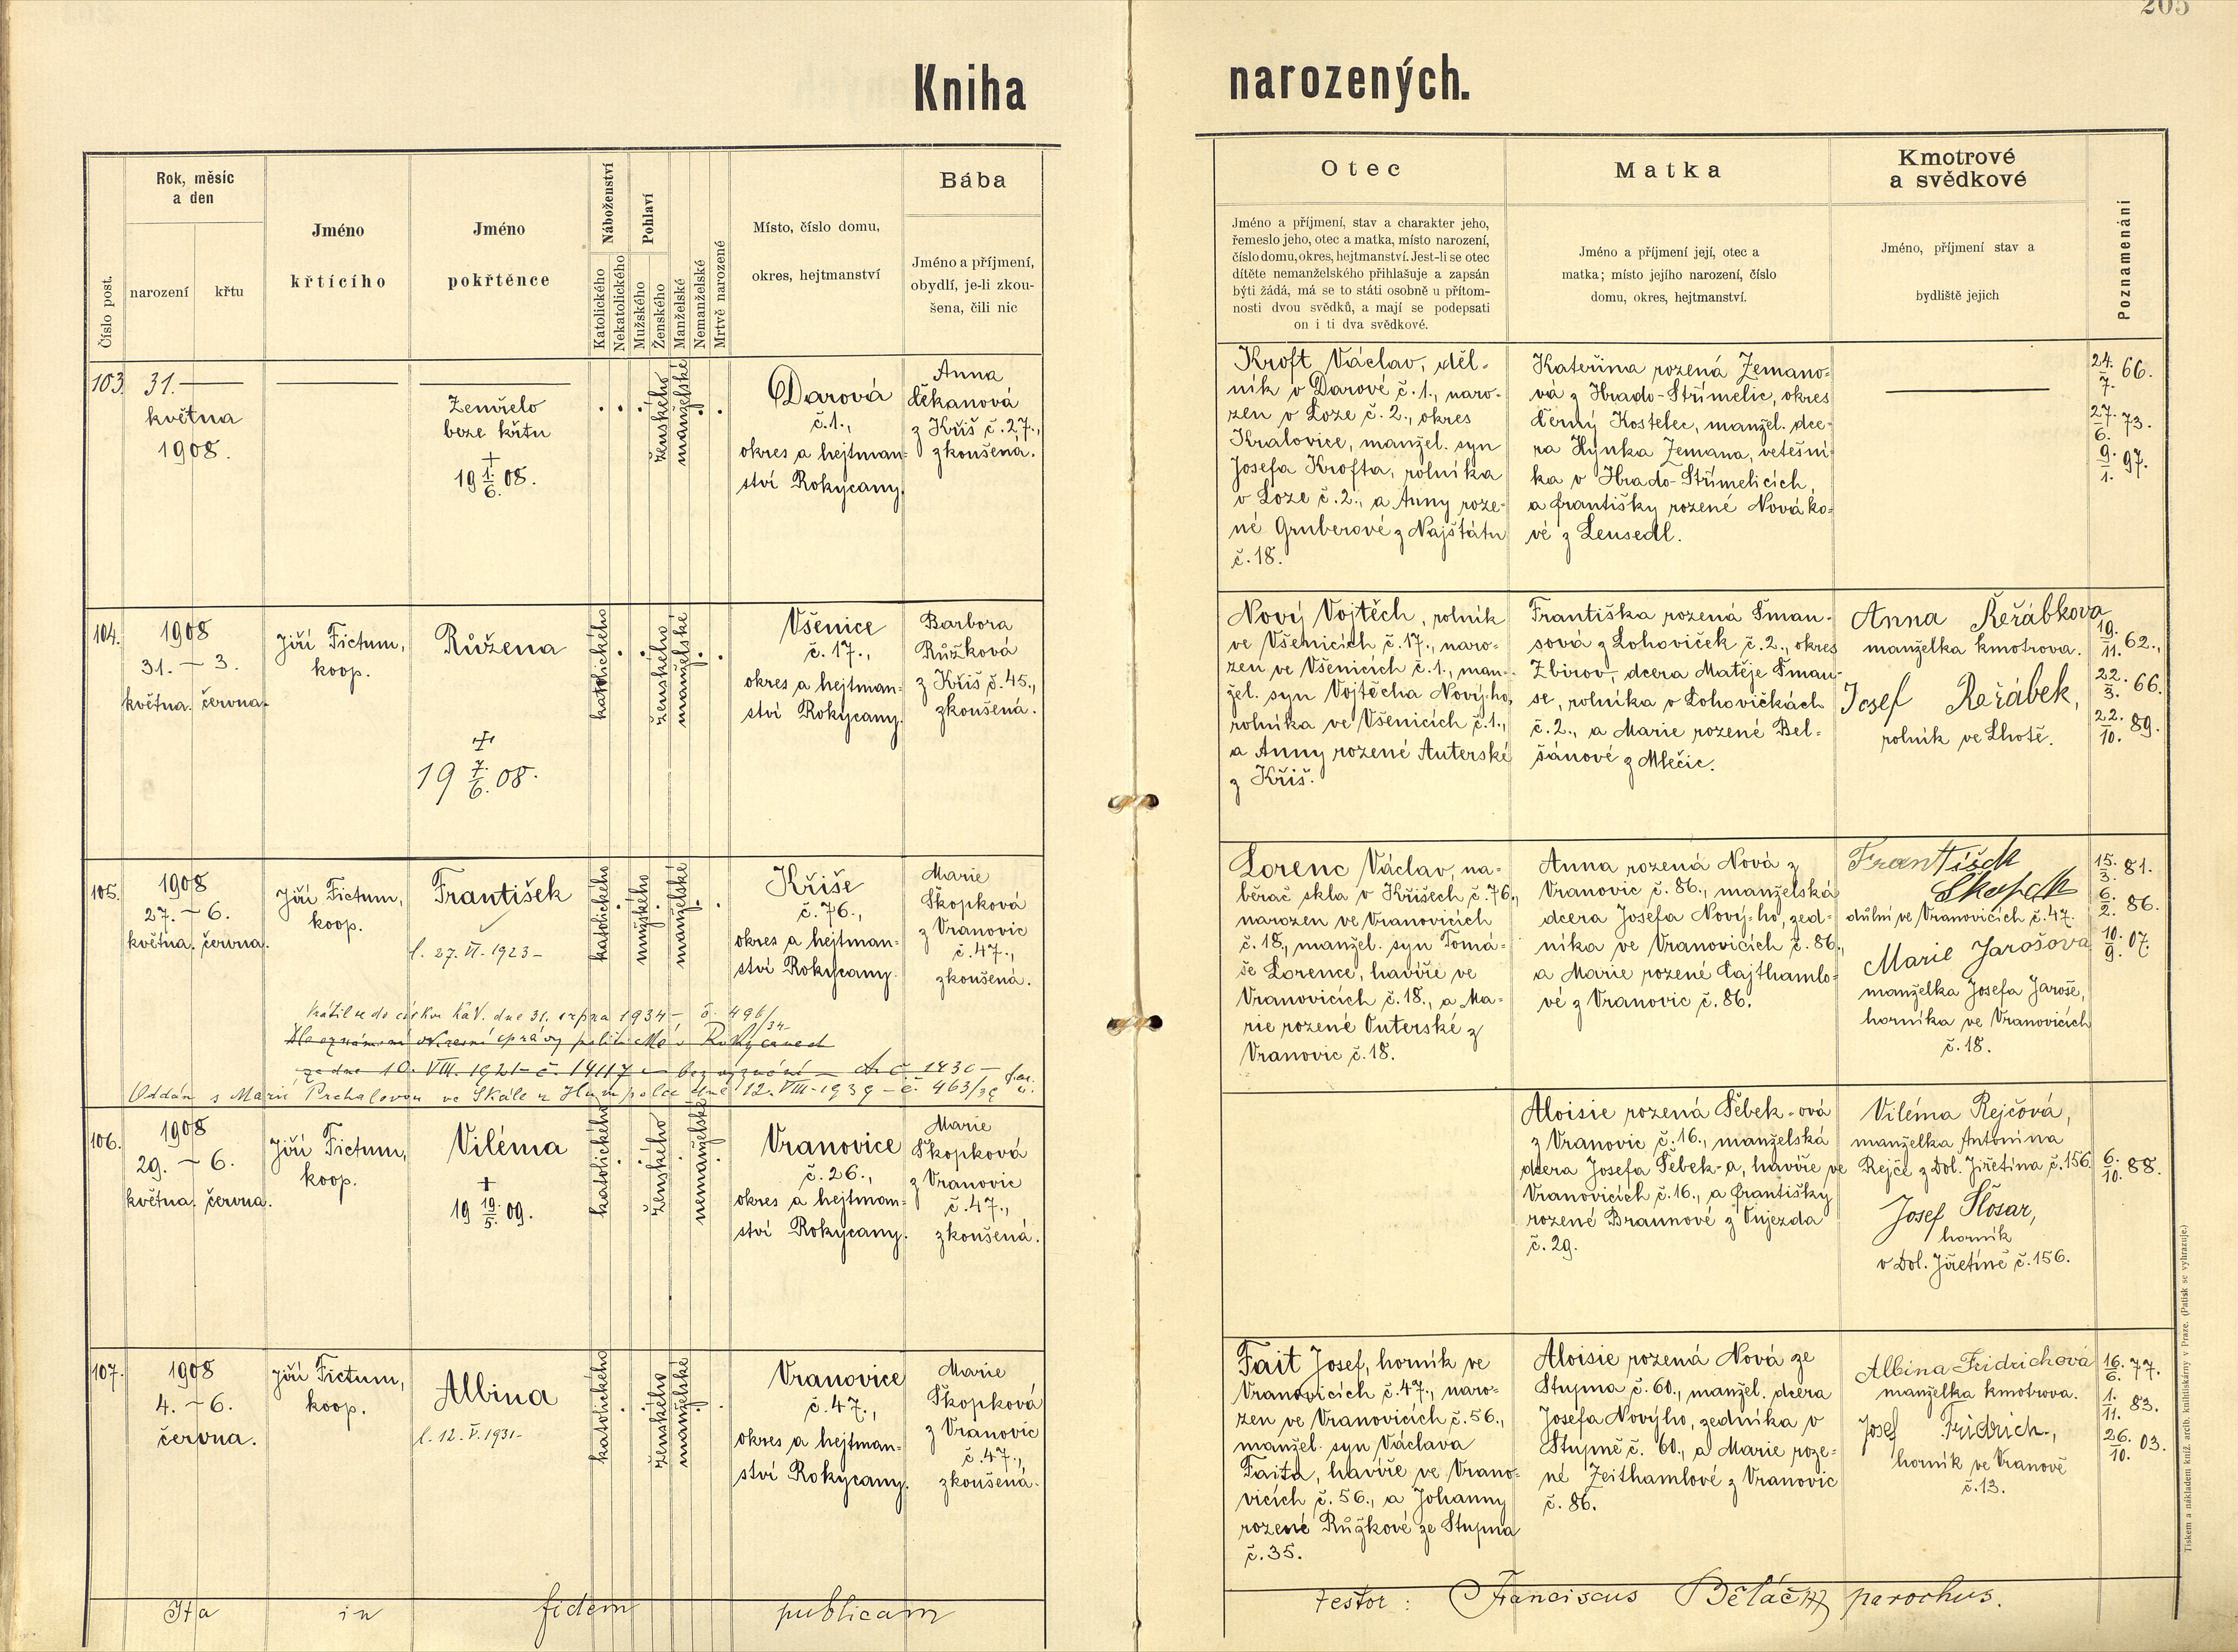 205
Kniha narozených.
Číslo post.
Rok, měsíc
a den
narození
křtu
Jméno
křtícího
Jméno
pokřtěnce
Náboženství
Katolického
Nekatolického
Pohlaví
Mužského
Ženského
Manželské
Nemanželské
Mrtvě narozené
Místo, číslo domu,
okres, hejtmanství
Bába
Jméno a příjmení,
obydlí, je-li zkou-
šena, čili nic
Otec
Jméno a příjmení, stav a charakter jeho,
řemeslo jeho, otec a matka, místo narození,
číslo domu, okres, hejtmanství. Jest-li se otec
dítěte nemanželského přihlašuje a zapsán
býti žádá, má se to státi osobně u přítom-
nosti dvou svědků, a mají se podepsati
on i ti dva svědkové.
Matka
Jméno a příjmení její, otec a
matka; místo jejího narození, číslo
domu, okres, hejtmanství.
Kmotrové
a svědkové
Jméno, příjmení stav a
bydliště jejich
Poznamenání
103.
31.
května
1908.
Zemřelo
beze křtu
+
19 1./6. 08.
ženského
manželské
Darová
č. 1.,
okres a hejtman-
ství Rokycany.
Anna
Čekanová
z Kříš č. 27.,
zkoušená.
Kroft Václav, děl-
ník v Darové č. 1., naro-
zen v Loze č. 2., okres
Kralovice, manžel. syn
Josefa Krofta, rolníka
v Loze č. 2., a Anny roze-
né Gruberové z Najštátu
č. 18.
Kateřina rozená Zemano-
vá z Hrado-Střímelic, okres
Černý Kostelec, manžel. dce-
ra Hynka Zemana, vetešní-
ka v Hrado-Střimelicích,
a Františky rozené Nováko-
vé z Lensedl.
24./7. 66.
27./6. 73.
9./1. 97.
104.
1908
31. – 3.
května. června.
Jiří Fictum,
koop.
Růžena
+
19 7./6. 08.
katolického
ženského
manželské
Všenice
č. 17.,
okres a hejtman-
ství Rokycany.
Barbora
Růžková
z Kříš č. 45.,
zkoušená.
Nový Vojtěch, rolník
ve Všenicích č. 17., naro-
zen ve Všenicích č. 1., man-
žel. syn Vojtěcha Nový-ho,
rolníka ve Všenicích č. 1.,
a Anny rozené Auterské
z Kříš.
Františka rozená Šman-
sová z Lohoviček č. 2., okres
Zbirov, dcera Matěje Šman-
se, rolníka v Lohovičkách
č. 2., a Marie rozené Bel-
šánové z Mlečic.
Anna Řeřábkova
manželka kmotrova.
Josef Řeřábek,
rolník ve Lhotě.
19./11. 62.,
22./3. 66.
22./10. 89.
105.
1908
27. – 6.
května. června.
Jiří Fictum,
koop.
František
l. 27. VI. 1923 –
katolického
mužského
manželské
Kříše
č. 76.,
okres a hejtman-
ství Rokycany.
Marie
Škopková
z Vranovic
č. 47.,
zkoušená.
Lorenc Václav, na-
běrač skla v Kříšech č. 76.,
narozen ve Vranovicích
č. 18., manžel. syn Tomá-
še Lorence, havíře ve
Vranovicích č. 18., a Ma-
rie rozené Outerské z
Vranovic č. 18.
Anna rozená Nová z
Vranovic č. 86., manželská
dcera Josefa Nový-ho, zed-
níka ve Vranovicích č. 86.,
a Marie rozené Cajthamlo-
vé z Vranovic č. 86.
František
Škopek
důlní ve Vranovicích č. 47.
Marie Jarošova
manželka Josefa Jaroše,
horníka ve Vranovicích
č. 18.
15./3. 81.
6./2. 86.
10./9. 07.
Vrátil se do církve kat. dne 31. srpna 1934 – č. 496/34 –
Dle oznámení okresní správy politické v Rokycanech
ze dne 10. VIII. 1921 – č. 14117 – bez vyznání – č. 1430 –
Oddán s Marií Prchalovou ve Skále u Humpolce dne 12. VIII. 1939 – č. 463/39
106.
1908
29. – 6.
května. června.
Jiří Fictum,
koop.
Viléma
+
19 19./5. 09.
katolického
ženského
nemanželské
Vranovice
č. 26.,
okres a hejtman-
ství Rokycany.
Marie
Škopková
z Vranovic
č. 47.,
zkoušená.
Aloisie rozená Šebek-ová
z Vranovic č. 16., manželská
dcera Josefa Šebek-a, havíře ve
Vranovicích č. 16., a Františky
rozené Braunové z Oujezda
č. 29.
Viléma Rejčová,
manželka Antonína
Rejče z Dol. Jiřetína č. 156.
Josef Šlosar,
horník
v Dol. Jiřetíně č. 156.
6./10. 88.
107.
1908
4. – 6.
června.
Jiří Fictum,
koop.
Albina
l. 12. V. 1931 –
katolického
ženského
manželské
Vranovice
č. 47.,
okres a hejtman-
ství Rokycany.
Marie
Škopková
z Vranovic
č. 47.,
zkoušená.
Fait Josef, horník ve
Vranovicích č. 47., naro-
zen ve Vranovicích č. 56.,
manžel. syn Václava
Faita, havíře ve Vrano-
vicích č. 56., a Johanny
rozené Růžkové ze Stupna
č. 35.
Aloisie rozená Nová ze
Stupna č. 60., manžel. dcera
Josefa Novýho, zedníka v
Stupně č. 60., a Marie roze-
né Zeithamlové z Vranovic
č. 86.
Albina Fridrichová
manželka kmotrova.
Josef Fridrich.,
horník ve Vranově
č. 13.
16./6. 77.
1./11. 83.
26./10. 03.
Ita in fidem publicam testor: Franciscus Běláč parochus.
Tiskem a nákladem kníž. arcib. knihtiskárny v Praze. (Patisk se vyhrazuje.)